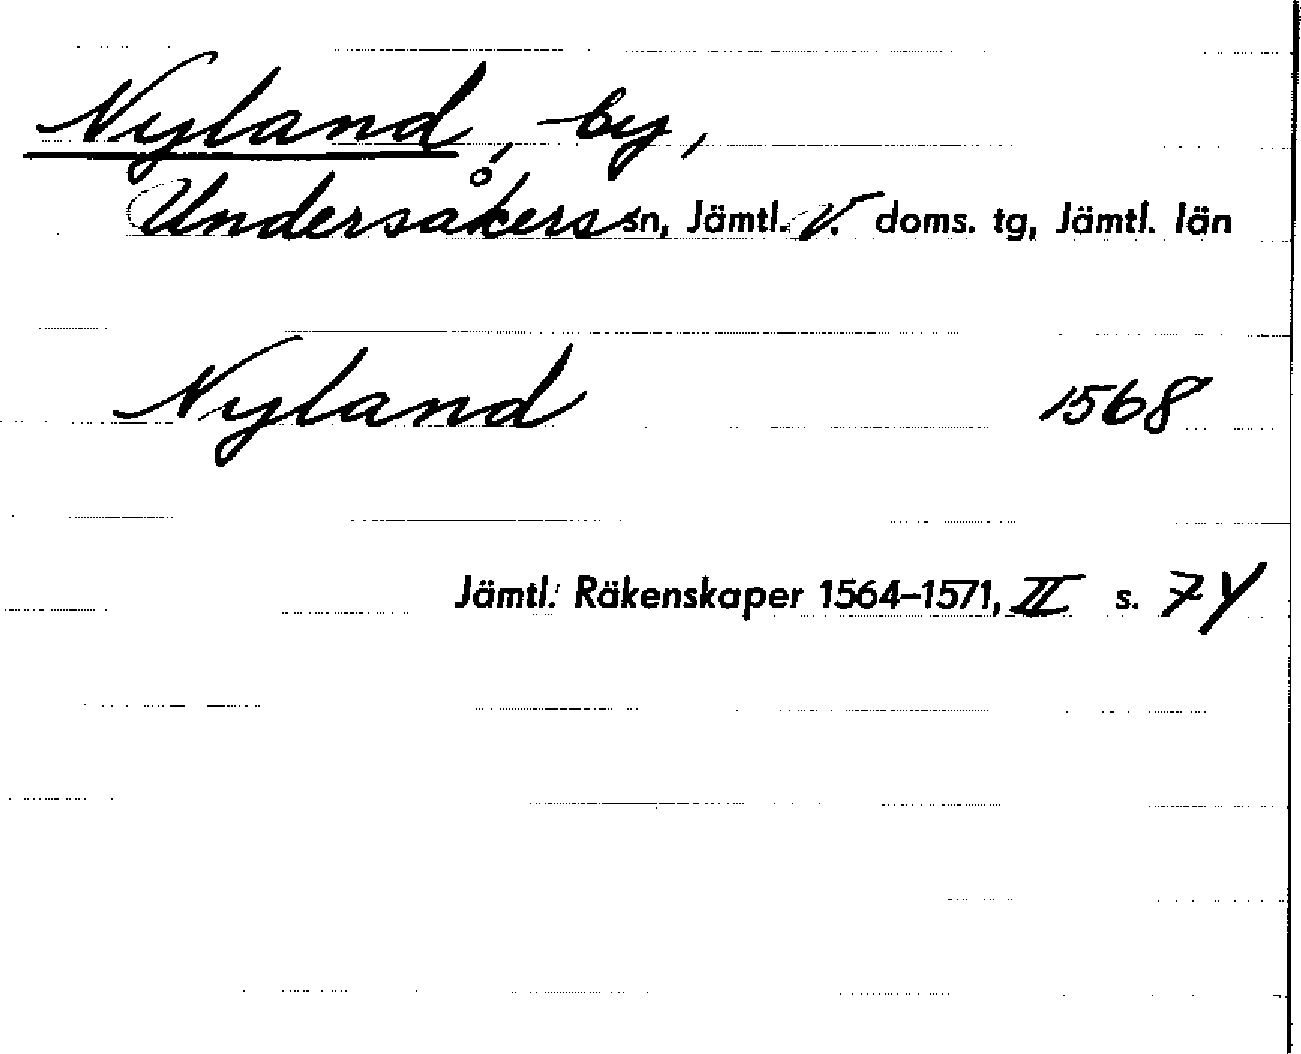 Nyland, by,
Undersåkers sn, Jämtl. V. doms. tg, Jämtl. län
Nyland 1568
Jämtl. Räkenskaper 1564–1571, II s. 74